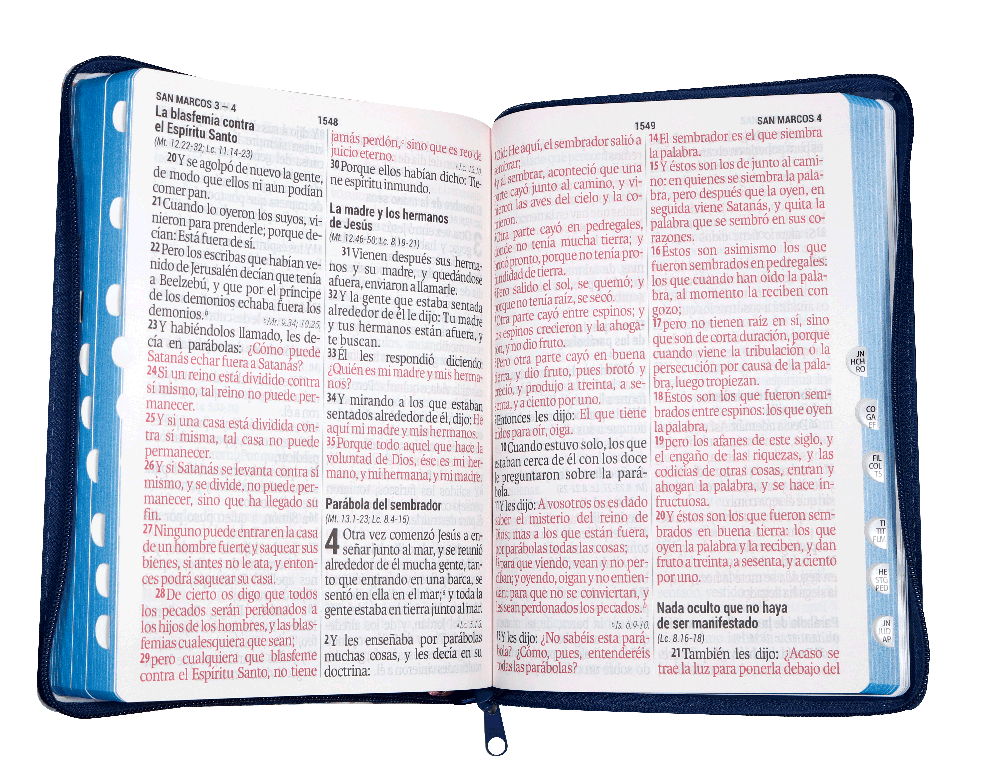 SAN MARCOS 3 – 4
1548
La blasfemia contra
el Espíritu Santo
(Mt. 12.22-32; Lc. 11.14-23)
20 Y se agolpó de nuevo la gente,
de modo que ellos ni aun podían
comer pan.
21 Cuando lo oyeron los suyos, vi-
nieron para prenderle; porque de-
cían: Está fuera de sí.
22 Pero los escribas que habían ve-
nido de Jerusalén decían que tenía
a Beelzebú, y que por el príncipe
de los demonios echaba fuera los
demonios.
Mt. 9.34; 10.25.
23 Y habiéndolos llamado, les de-
cía en parábolas: ¿Cómo puede
Satanás echar fuera a Satanás?
24 Si un reino está dividido contra
sí mismo, tal reino no puede per-
manecer.
25 Y si una casa está dividida con-
tra sí misma, tal casa no puede
permanecer.
26 Y si Satanás se levanta contra sí
mismo, y se divide, no puede per-
manecer, sino que ha llegado su
fin.
27 Ninguno puede entrar en la casa
de un hombre fuerte y saquear sus
bienes, si antes no le ata, y enton-
ces podrá saquear su casa.
28 De cierto os digo que todos
los pecados serán perdonados a
los hijos de los hombres, y las blas-
femias cualesquiera que sean;
29 pero cualquiera que blasfeme
contra el Espíritu Santo, no tiene
jamás perdón, sino que es reo de
juicio eterno.
30 Porque ellos habían dicho: Tie-
ne espíritu inmundo.
La madre y los hermanos
de Jesús
(Mt. 12.46-50; Lc. 8.19-21)
31 Vienen después sus herma-
nos y su madre, y quedándose
afuera, enviaron a llamarle.
32 Y la gente que estaba sentada
alrededor de él le dijo: Tu madre
y tus hermanos están afuera, y
te buscan.
33 Él les respondió diciendo:
¿Quién es mi madre y mis herma-
nos?
34 Y mirando a los que estaban
sentados alrededor de él, dijo: He
aquí mi madre y mis hermanos.
35 Porque todo aquel que hace la
voluntad de Dios, ése es mi her-
mano, y mi hermana, y mi madre.
Parábola del sembrador
(Mt. 13.1-23; Lc. 8.4-15)
4 Otra vez comenzó Jesús a en-
señar junto al mar, y se reunió
alrededor de él mucha gente, tan-
to que entrando en una barca, se
sentó en ella en el mar; y toda la
gente estaba en tierra junto al mar.
2 Y les enseñaba por parábolas
muchas cosas, y les decía en su
doctrina:
1549
SAN MARCOS 4
Oíd: He aquí, el sembrador salió a
sembrar;
al sembrar, aconteció que una
parte cayó junto al camino, y vi-
nieron las aves del cielo y la co-
mieron.
Otra parte cayó en pedregales,
donde no tenía mucha tierra; y
brotó pronto, porque no tenía pro-
fundidad de tierra.
Pero salido el sol, se quemó; y
porque no tenía raíz, se secó.
Otra parte cayó entre espinos; y
los espinos crecieron y la ahoga-
ron, y no dio fruto.
Pero otra parte cayó en buena
tierra, y dio fruto, pues brotó y
creció, y produjo a treinta, a se-
senta, y a ciento por uno.
Entonces les dijo: El que tiene
oídos para oír, oiga.
10 Cuando estuvo solo, los que
estaban cerca de él con los doce
le preguntaron sobre la pará-
bola.
Y les dijo: A vosotros os es dado
saber el misterio del reino de
Dios; mas a los que están fuera,
por parábolas todas las cosas;
para que viendo, vean y no per-
ciban; y oyendo, oigan y no entien-
dan; para que no se conviertan, y
les sean perdonados los pecados.
Is. 6.9-10.
Y les dijo: ¿No sabéis esta pará-
bola? ¿Cómo, pues, entenderéis
todas las parábolas?
14 El sembrador es el que siembra
la palabra.
15 Y éstos son los de junto al cami-
no: en quienes se siembra la pala-
bra, pero después que la oyen, en
seguida viene Satanás, y quita la
palabra que se sembró en sus co-
razones.
16 Éstos son asimismo los que
fueron sembrados en pedregales:
los que cuando han oído la pala-
bra, al momento la reciben con
gozo;
17 pero no tienen raíz en sí, sino
que son de corta duración, porque
cuando viene la tribulación o la
persecución por causa de la pala-
bra, luego tropiezan.
18 Éstos son los que fueron sem-
brados entre espinos: los que oyen
la palabra,
19 pero los afanes de este siglo, y
el engaño de las riquezas, y las
codicias de otras cosas, entran y
ahogan la palabra, y se hace in-
fructuosa.
20 Y éstos son los que fueron sem-
brados en buena tierra: los que
oyen la palabra y la reciben, y dan
fruto a treinta, a sesenta, y a ciento
por uno.
Nada oculto que no haya
de ser manifestado
(Lc. 8.16-18)
21 También les dijo: ¿Acaso se
trae la luz para ponerla debajo del
JN
HCH
RO
CO
GA
EF
FIL
COL
TS
TI
TIT
FLM
HE
STG
PED
JN
JUD
AP